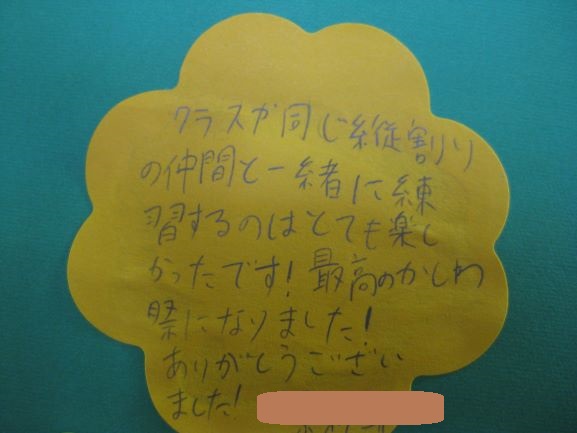 クラスが同じ縦割り
の仲間と一緒に練
習するのはとても楽し
かったです！最高のかしわ
祭になりました！
ありがとうござい
ました！